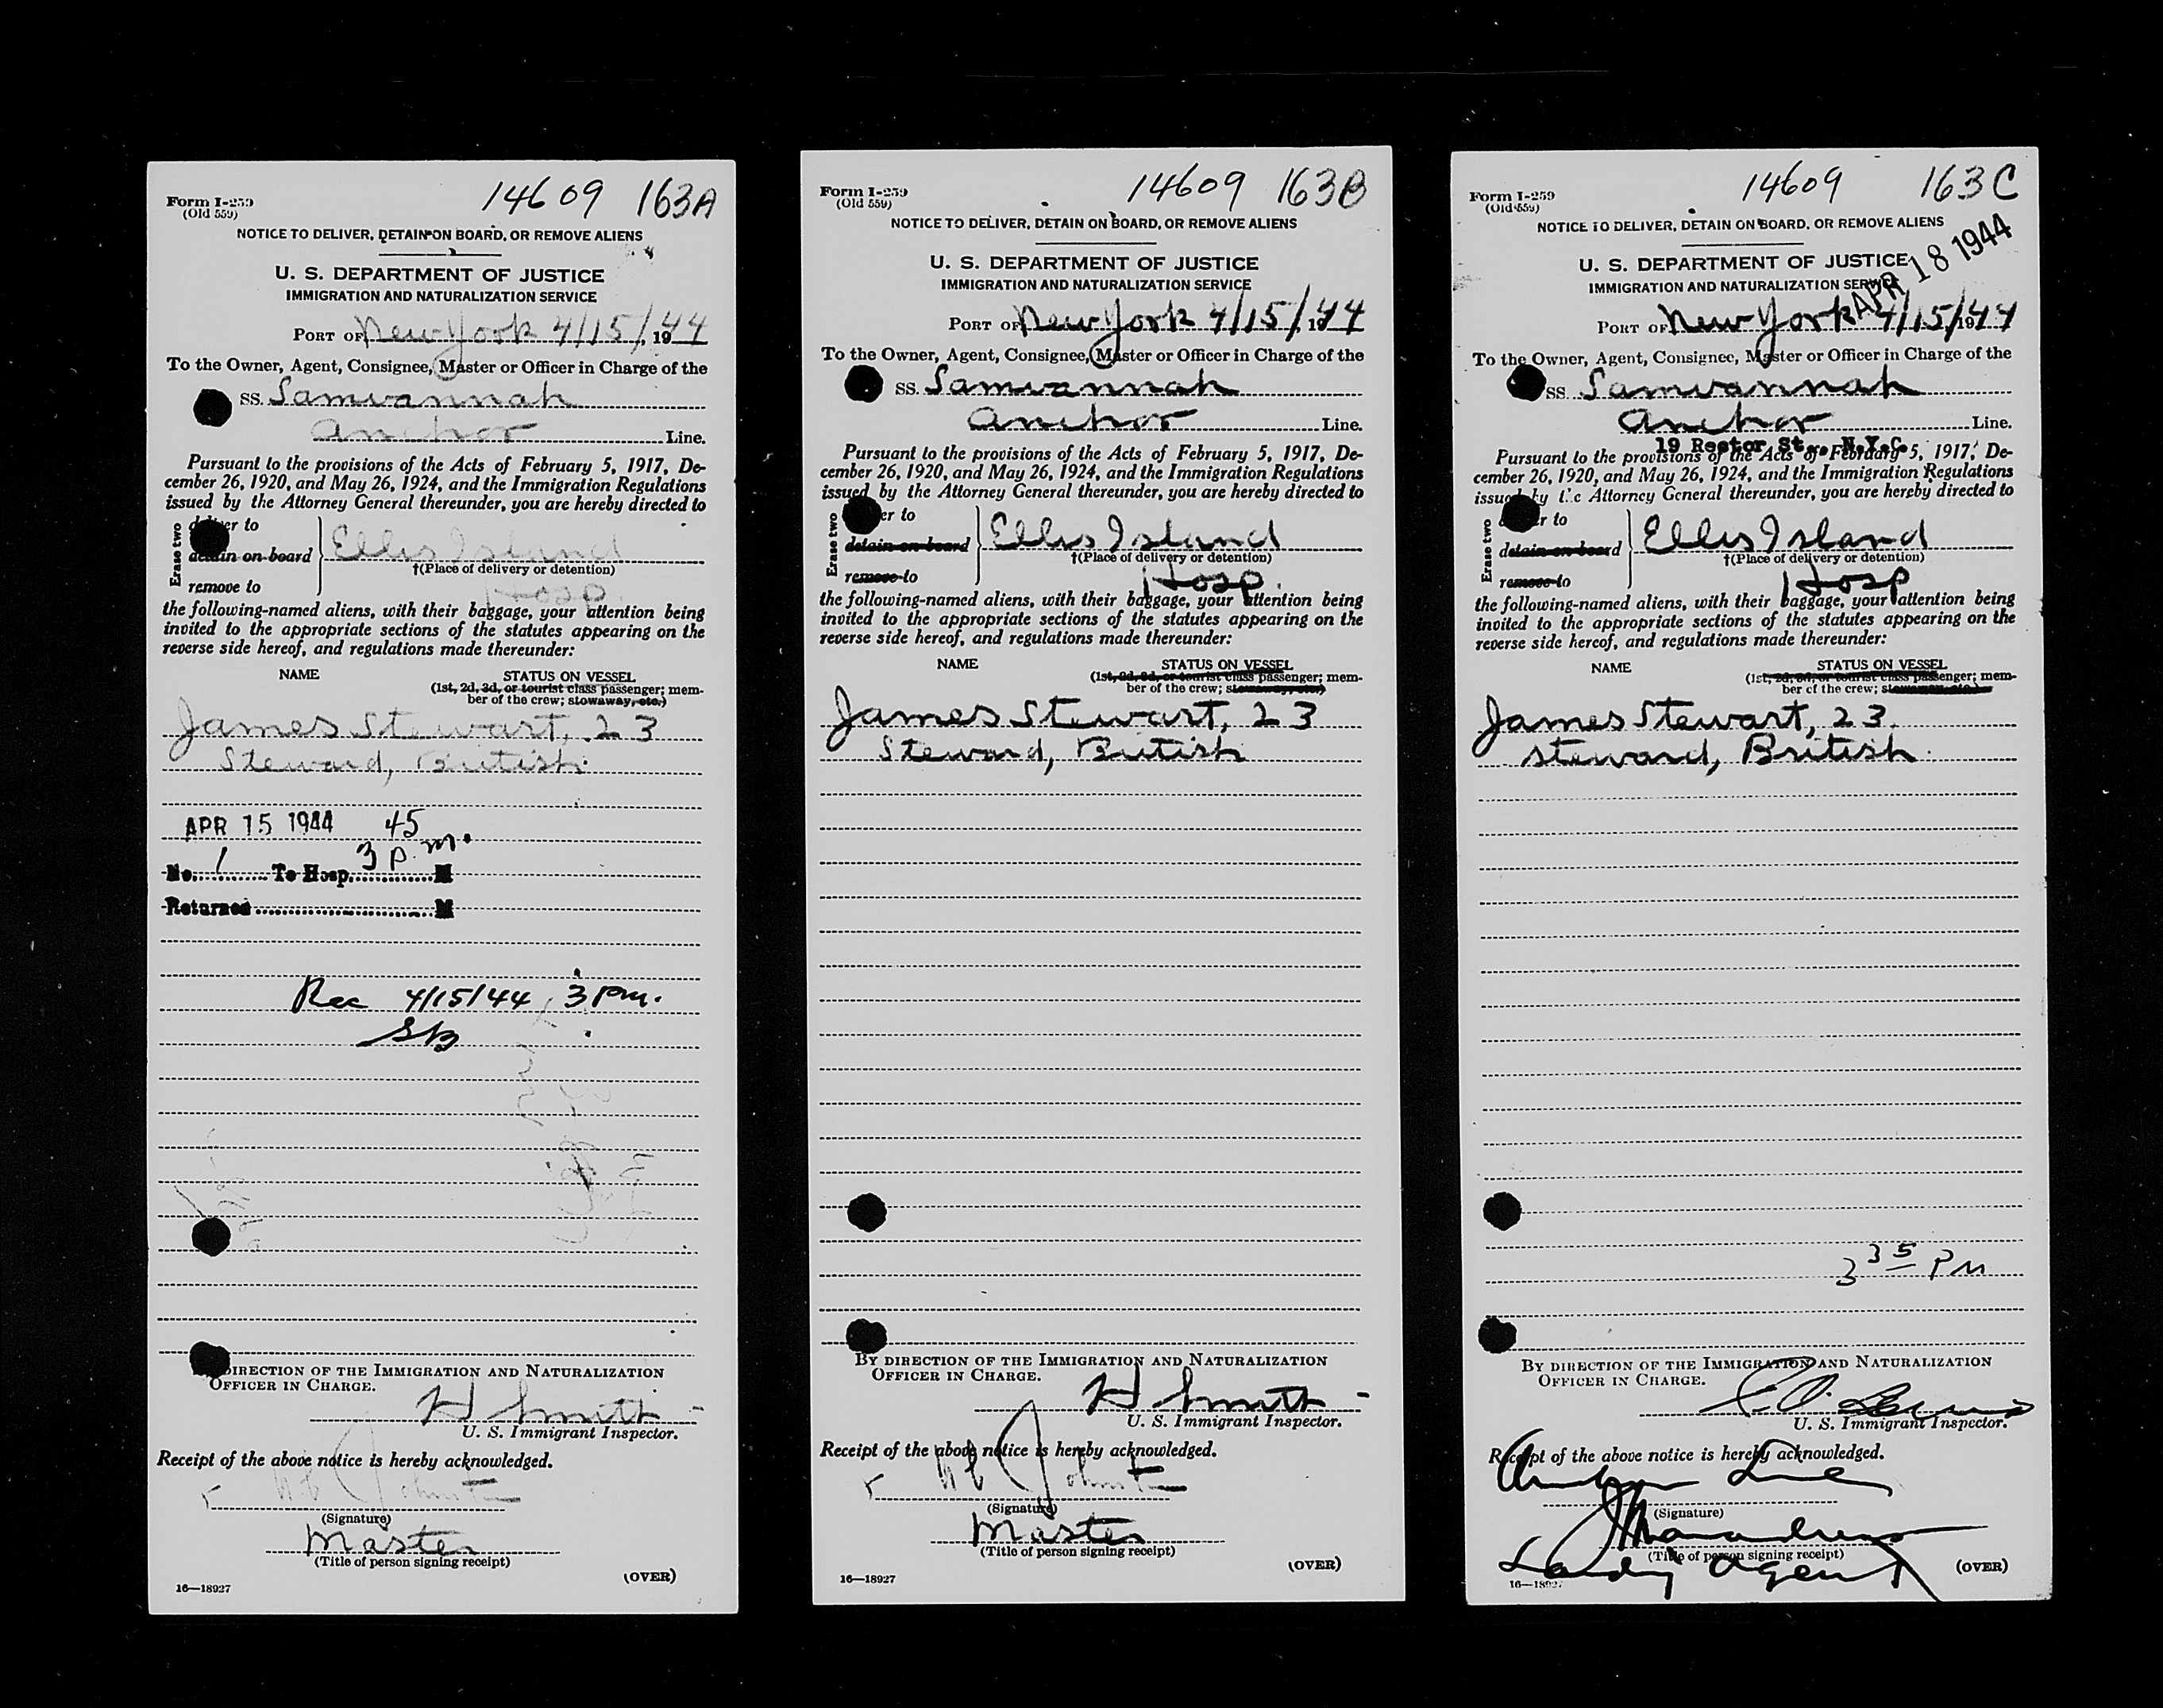 14609 163A
Form I-259
(Old 559)
NOTICE TO DELIVER, DETAIN ON BOARD, OR REMOVE ALIENS
U. S. DEPARTMENT OF JUSTICE
IMMIGRATION AND NATURALIZATION SERVICE
PORT OF New York 4/15/, 1944
To the Owner, Agent, Consignee, Master or Officer in Charge of the
SS. Samvannah
Anchor Line.
Pursuant to the provisions of the Acts of February 5, 1917, De-
cember 26, 1920, and May 26, 1924, and the Immigration Regulations
issued by the Attorney General thereunder, you are hereby directed to
Erase two
deliver to
detain on board
remove to
Ellis Island
†(Place of delivery or detention)
Hosp.
the following-named aliens, with their baggage, your attention being
invited to the appropriate sections of the statutes appearing on the
reverse side hereof, and regulations made thereunder:
NAME STATUS ON VESSEL
(1st, 2d, 3d, or tourist class passenger; mem-
ber of the crew; stowaway, etc.)
James Stewart, 23
Steward, British
APR 15 1944 45
No. 1 To Hosp. 3 P.m. M
Returned M
Rec 4/15/44, 3 Pm.
SB
BY DIRECTION OF THE IMMIGRATION AND NATURALIZATION
OFFICER IN CHARGE.
H Smith
U. S. Immigrant Inspector.
Receipt of the above notice is hereby acknowledged.
Johnst
(Signature)
Master
(Title of person signing receipt)
(OVER)
16—18927
14609 163B
Form I-259
(Old 559)
NOTICE TO DELIVER, DETAIN ON BOARD, OR REMOVE ALIENS
U. S. DEPARTMENT OF JUSTICE
IMMIGRATION AND NATURALIZATION SERVICE
PORT OF New York 4/15/, 1944
To the Owner, Agent, Consignee, Master or Officer in Charge of the
SS. Samvannah
Anchor Line.
Pursuant to the provisions of the Acts of February 5, 1917, De-
cember 26, 1920, and May 26, 1924, and the Immigration Regulations
issued by the Attorney General thereunder, you are hereby directed to
Erase two
deliver to
detain on board
remove to
Ellis Island
†(Place of delivery or detention)
Hosp.
the following-named aliens, with their baggage, your attention being
invited to the appropriate sections of the statutes appearing on the
reverse side hereof, and regulations made thereunder:
NAME STATUS ON VESSEL
(1st, 2d, 3d, or tourist class passenger; mem-
ber of the crew; stowaway, etc.)
James Stewart, 23
Steward, British
BY DIRECTION OF THE IMMIGRATION AND NATURALIZATION
OFFICER IN CHARGE.
H Smith
U. S. Immigrant Inspector.
Receipt of the above notice is hereby acknowledged.
Johnst
(Signature)
Master
(Title of person signing receipt)
(OVER)
16—18927
14609 163C
Form I-259
(Old 559)
NOTICE TO DELIVER, DETAIN ON BOARD, OR REMOVE ALIENS
APR 18 1944
U. S. DEPARTMENT OF JUSTICE
IMMIGRATION AND NATURALIZATION SERVICE
PORT OF New York 4/15/1944
To the Owner, Agent, Consignee, Master or Officer in Charge of the
SS. Samvannah
Anchor Line.
19 Rector St., N.Y.C.
Pursuant to the provisions of the Acts of February 5, 1917, De-
cember 26, 1920, and May 26, 1924, and the Immigration Regulations
issued by the Attorney General thereunder, you are hereby directed to
Erase two
deliver to
detain on board
remove to
Ellis Island
†(Place of delivery or detention)
Hosp
the following-named aliens, with their baggage, your attention being
invited to the appropriate sections of the statutes appearing on the
reverse side hereof, and regulations made thereunder:
NAME STATUS ON VESSEL
(1st, 2d, 3d, or tourist class passenger; mem-
ber of the crew; stowaway, etc.)
James Stewart, 23
Steward, British
3 35 PM
BY DIRECTION OF THE IMMIGRATION AND NATURALIZATION
OFFICER IN CHARGE.
U. S. Immigrant Inspector.
Receipt of the above notice is hereby acknowledged.
Anchor Line
(Signature)
(Title of person signing receipt)
Agent
(OVER)
16—18927